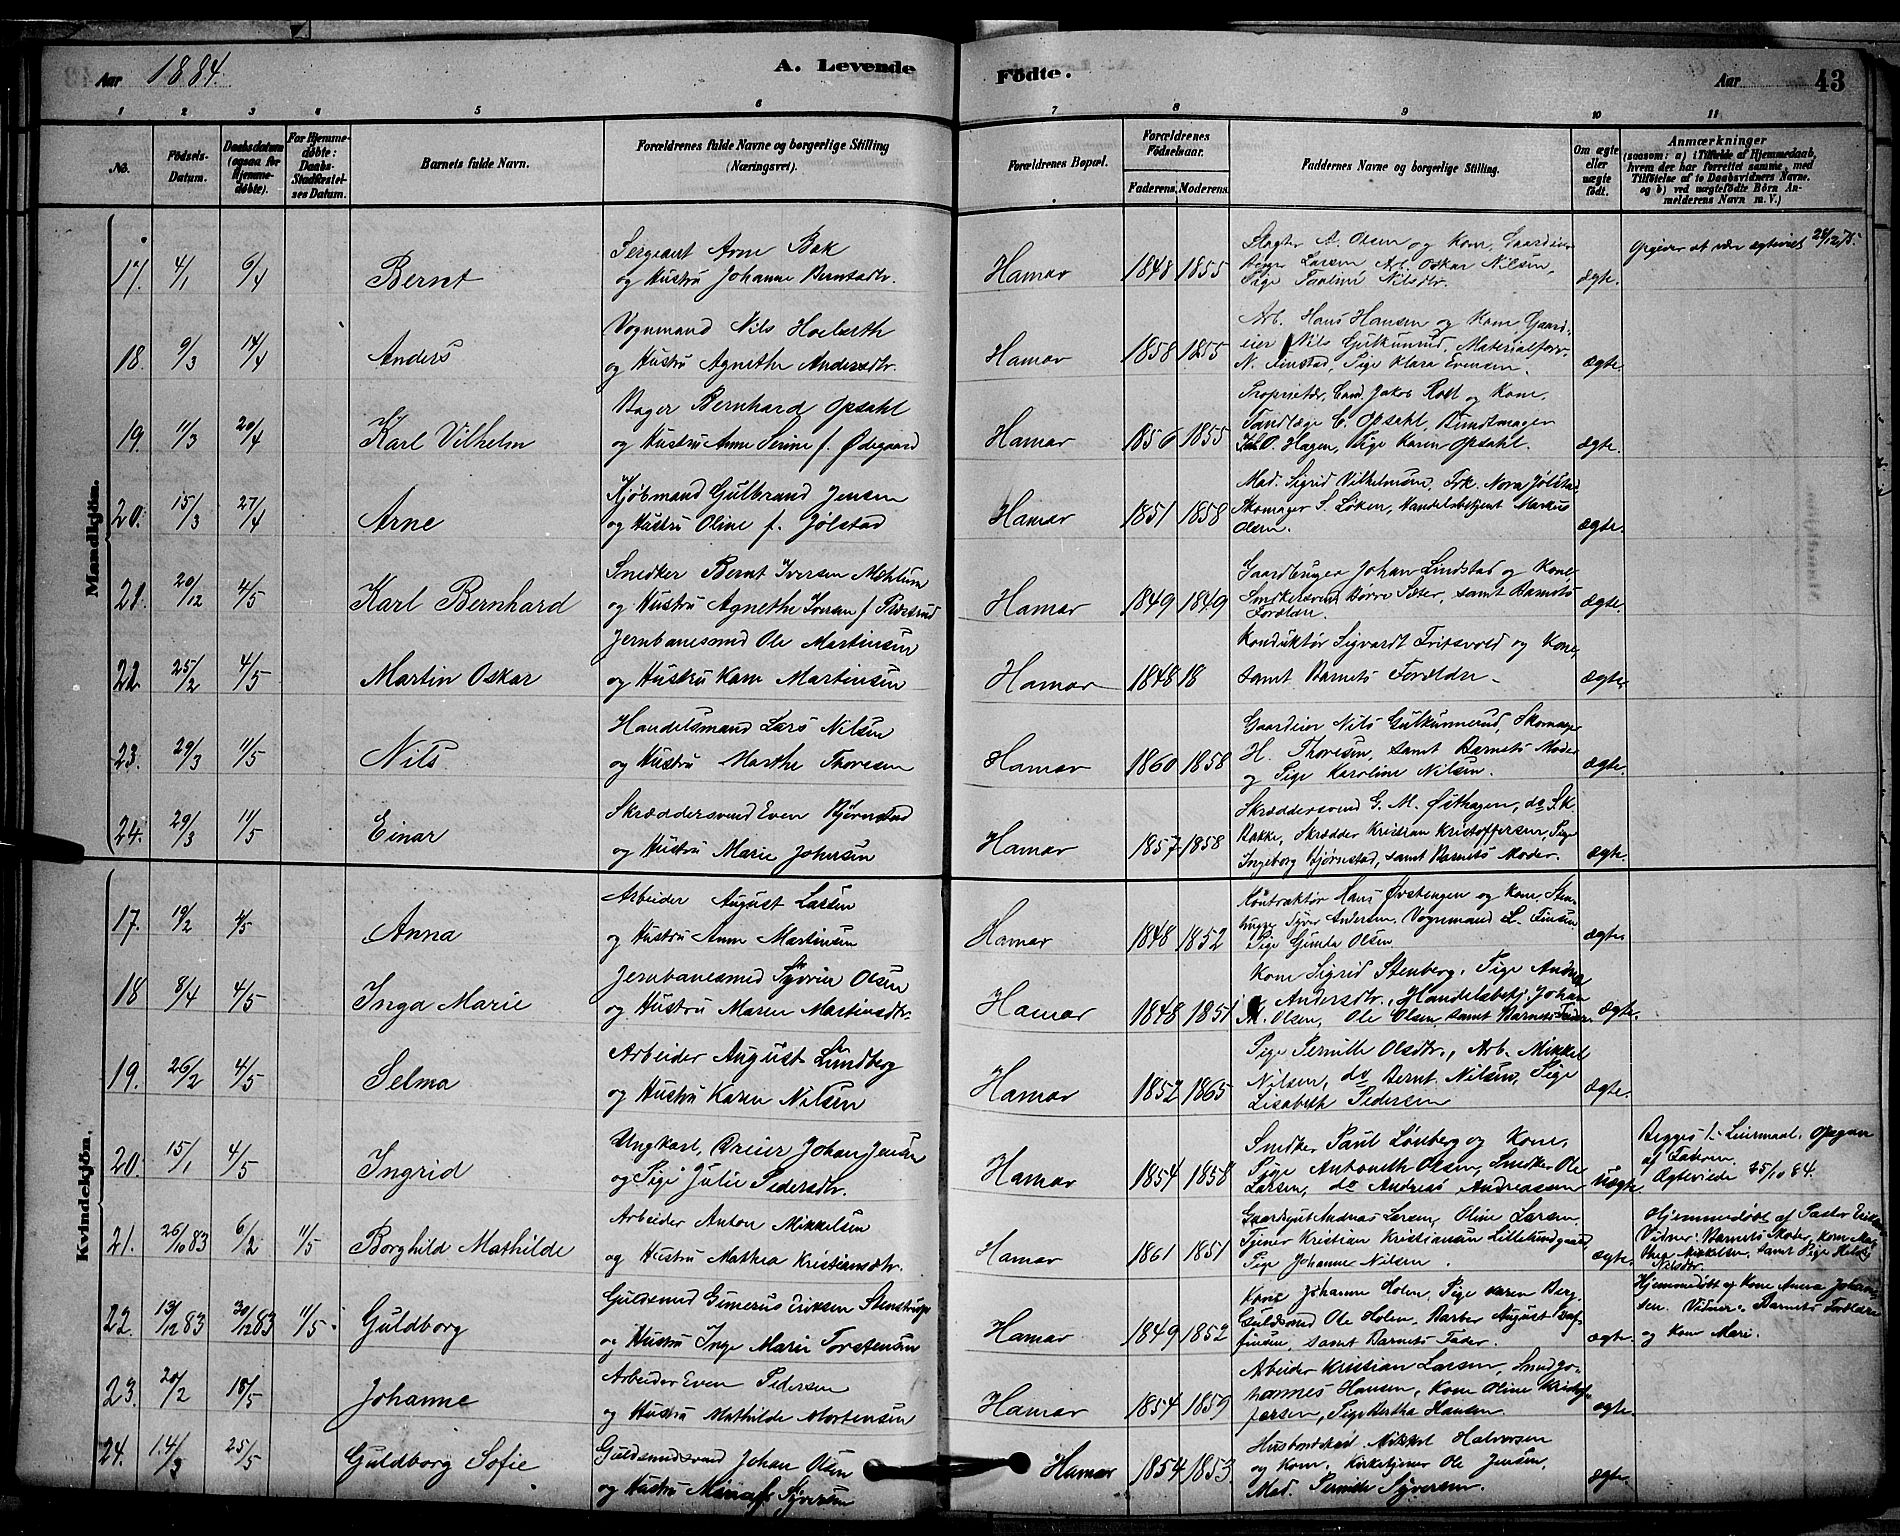 Aar 1884. A. Levende Fødte. Aar 43
1 2 3 4 5 6 7 8 9 10 11
No.
Fødsels-Datum.
Daabsdatum (ogsaa for Hjemmedøbte).
For Hjemmedøbte: Daabs-Stadfæstelses Datum.
Barnets fulde Navn.
Forældrenes fulde Navne og borgerlige Stilling (Næringsvei).
Forældrenes Bopæl.
Forældrenes Fødselsaar.
Faderens. Moderens.
Faddernes Navne og borgerlige Stilling.
Om ægte eller uægte født.
Anmærkninger
(saasom: a) i Tilfælde af Hjemmedaab, hvem der har forrettet samme, med Tilføielse af to Daabsvidners Navne, og b) ved uægtefødte Børn Anmelderens Navn m. V.)
Mandkjøn.
17. 4/1 6/4 Bernt
Sergeant Arne Bak
og Hustru Johanne Berntsdtr.
Hamar 1848 1855
Slagter A. Olsen og Kone,
Larsen, Arb. Oskar Nilsen,
Pige Pauline Nilsdtr.
ægte.
Opgiver at være ægteviet 28/12 75.
18. 9/3 14/4 Anders
Vognmand Nils Hoelseth
og Hustru Agnethe Andersdtr.
Hamar 1858 1855
Arb. Hans Hansen og Kone, Gaard-
eier Nils Gulkunrud, Materialforv.
N. Finstad, Pige Klara Evensen.
ægte.
19. 11/3 20/4 Karl Vilhelm
Bager Bernhard Opsahl
og Hustru Anne Serine f. Ødegaard
Hamar 1856 1855
Proprietær, Cand. Jakob Roll og Kone,
Tandlæge C. Opsahl, Bundtmager
O. Hagen, Pige Karen Opsahl.
ægte.
20. 15/3 27/4 Arne
Kjøbmand Gulbrand Jensen
og Hustru Oline f. Jølstad
Hamar 1851 1858
Mad. Sigrid Vilhelmsen, Frk. Nora Jølstad,
Skomager S. Løken, Handelsbetjent Markus
Olsen.
ægte.
21. 20/12 4/5 Karl Bernhard
Snedker Bernt Iversen Mæhlum
og Hustru Agnethe Iversen f.
Hamar 1849 1849
Gaardbruger Johan Lindstad og Kone,
Snedkersvend Børre Sæter, samt Barnets
Forældre.
ægte.
22. 25/2 4/5 Martin Oskar
Jernbanesmed Ole Martinsen
og Hustru Karen Martinsen
Hamar 1848 18
Konduktør Sigvardt Fritsvold og Kone,
samt Barnets Forældre.
ægte.
23. 29/3 11/5 Nils
Handelsmand Lars Nilsen
og Hustru Marthe Thoresen
Hamar 1860 1858
Gaardeier Nils Gulkunnerud, Skomager
H. Thoresen, samt Barnets Moder
og Pige Karoline Nilsen.
ægte.
24. 29/3 11/5 Einar
Skræddersvend Even Bjørnstad
og Hustru Marie Johnsen
Hamar 1857 1858
Skræddersvend G. M. Østhagen, do S. K.
Bakke, Skrædder Kristian Kristoffersen, Pige
Ingeborg Bjørnstad, samt Barnets Moder.
ægte.
Kvindekjøn.
17. 19/2 4/5 Anna
Arbeider August Larsen
og Hustru Anne Martinsen
Hamar 1848 1852
Kontraktør Hans Øvstengen og Kone, Sten-
hugger Syver Andersen, Vognmand L.
Pige Gunda Olsen
ægte
18 8/4 4/5 Inga Marie
Jernbanesmed Syver Olsen
og Hustru Maren Martinsdtr.
Hamar 1848 1851
Kone Sigrid Stenberg, Pige Andrea
Andersdtr., Handelsbetj. Johan
M. Olsen, Ole Olsen, samt Barnets Fader.
ægte.
19. 26/2 4/5 Selma
Arbeider August Lundberg
og Hustru Karen Nilsen
Hamar 1852 1865
Pige Pernille Olsdtr., Arb. Mikkel
Nilsen, do Bernt Nilsen, Pige
Lisabeth Pedersen
ægte.
20. 15/1 4/5 Ingrid
Ungkarl, Dreier Johan Jensen
og Pige Julie Pedersdtr.
Hamar 1854 1858
Snedker Paul Lønberg og Kone,
Pige Antonette Olsen, Snedker Ole
Larsen, do Andreas Andreassen
uægte.
Begges 1. Leiermaal. Opgiven
af Faderen.
Ægteviede 25/10 84.
21. 26/10 83 6/2 11/5 Borghild Mathilde
Arbeider Anton Mikkelsen
og Hustru Mathea Kristiansdtr.
Hamar 1861 1851
Gaardsgut Andreas Larsen, Oline Larsen,
Tjener Kristian Kristiansen Lillelundgaard,
Pige Johanne Nilsen.
ægte.
Hjemmedøbt af Pastor
Vidner: Barnets Moder, Kone
Mikkelsen, samt Pige
Nilsdtr.
22. 13/12 83 30/12 83 11/5 Guldborg
Guldsmed Gunerus Eriksen Stenstrup
og Hustru Inge Marie Torstensen
Hamar 1849 1852
Kone Johanne Holen, Pige Karen Berg,
Guldsmed Ole Holen, Barber August
samt Barnets Fader.
ægte.
Hjemmedøbt af Kone Anna Johan-
sen. Vidner: Barnets Forældre
og Kone Mari.
23. 20/2 18/5 Johanne
Arbeider Even Pedersen
og Hustru Mathilde Mortensen
Hamar 1854 1859
Arbeider Kristian Larsen, Smed Jo-
hannes Hansen, Kone Oline Kristof-
fersen, Pige Bertha Hansen.
ægte.
24. 14/3 25/5 Guldborg Sofie
Guldsmedsvend Johan Olsen
og Hustru Maria Syversen
Hamar 1854 1853
Husbondskarl Mikkel Halvorsen
og Kone, Kirketjener Ole Jensen,
Mad. Pernille Syversen.
ægte.